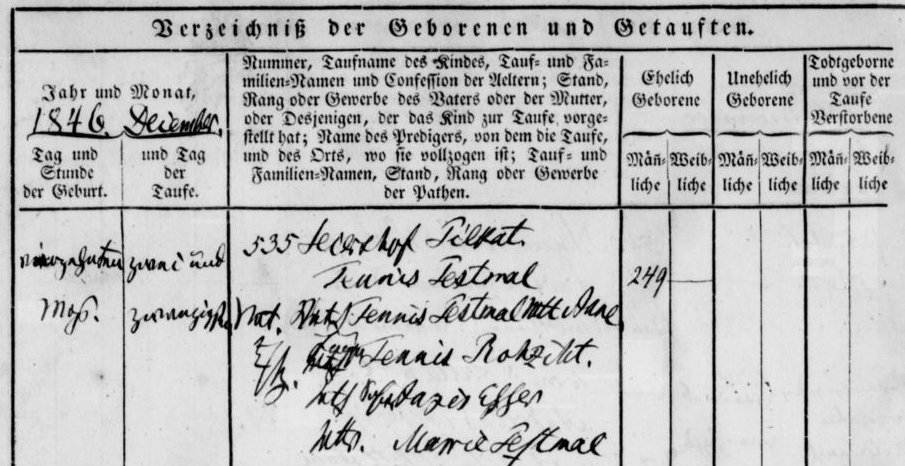 Verzeichniß der Geborenen und Getauften.
Jahr und Monat,
1846. December.
Tag und
Stunde
der Geburt.
und Tag
der
Taufe.
Nummer, Taufname des Kindes, Tauf- und Fa-
milien-Namen und Confession der Aeltern; Stand,
Rang oder Gewerbe des Vaters oder der Mutter,
oder Desjenigen, der das Kind zur Taufe vorge-
stellt hat; Name des Predigers, von dem die Taufe,
und des Orts, wo sie vollzogen ist; Tauf- und
Familien-Namen, Stand, Rang oder Gewerbe
der Pathen.
Ehelich
Geborene
Männ-
liche
Weib-
liche
Unehelich
Geborene
Männ-
liche
Weib-
liche
Todtgeborne
und vor der
Taufe
Verstorbene
Männ-
liche
Weib-
liche
zwei und
535
Tennis Testmal
249
Tennis Testmal
Tennis
Marrie Testmal